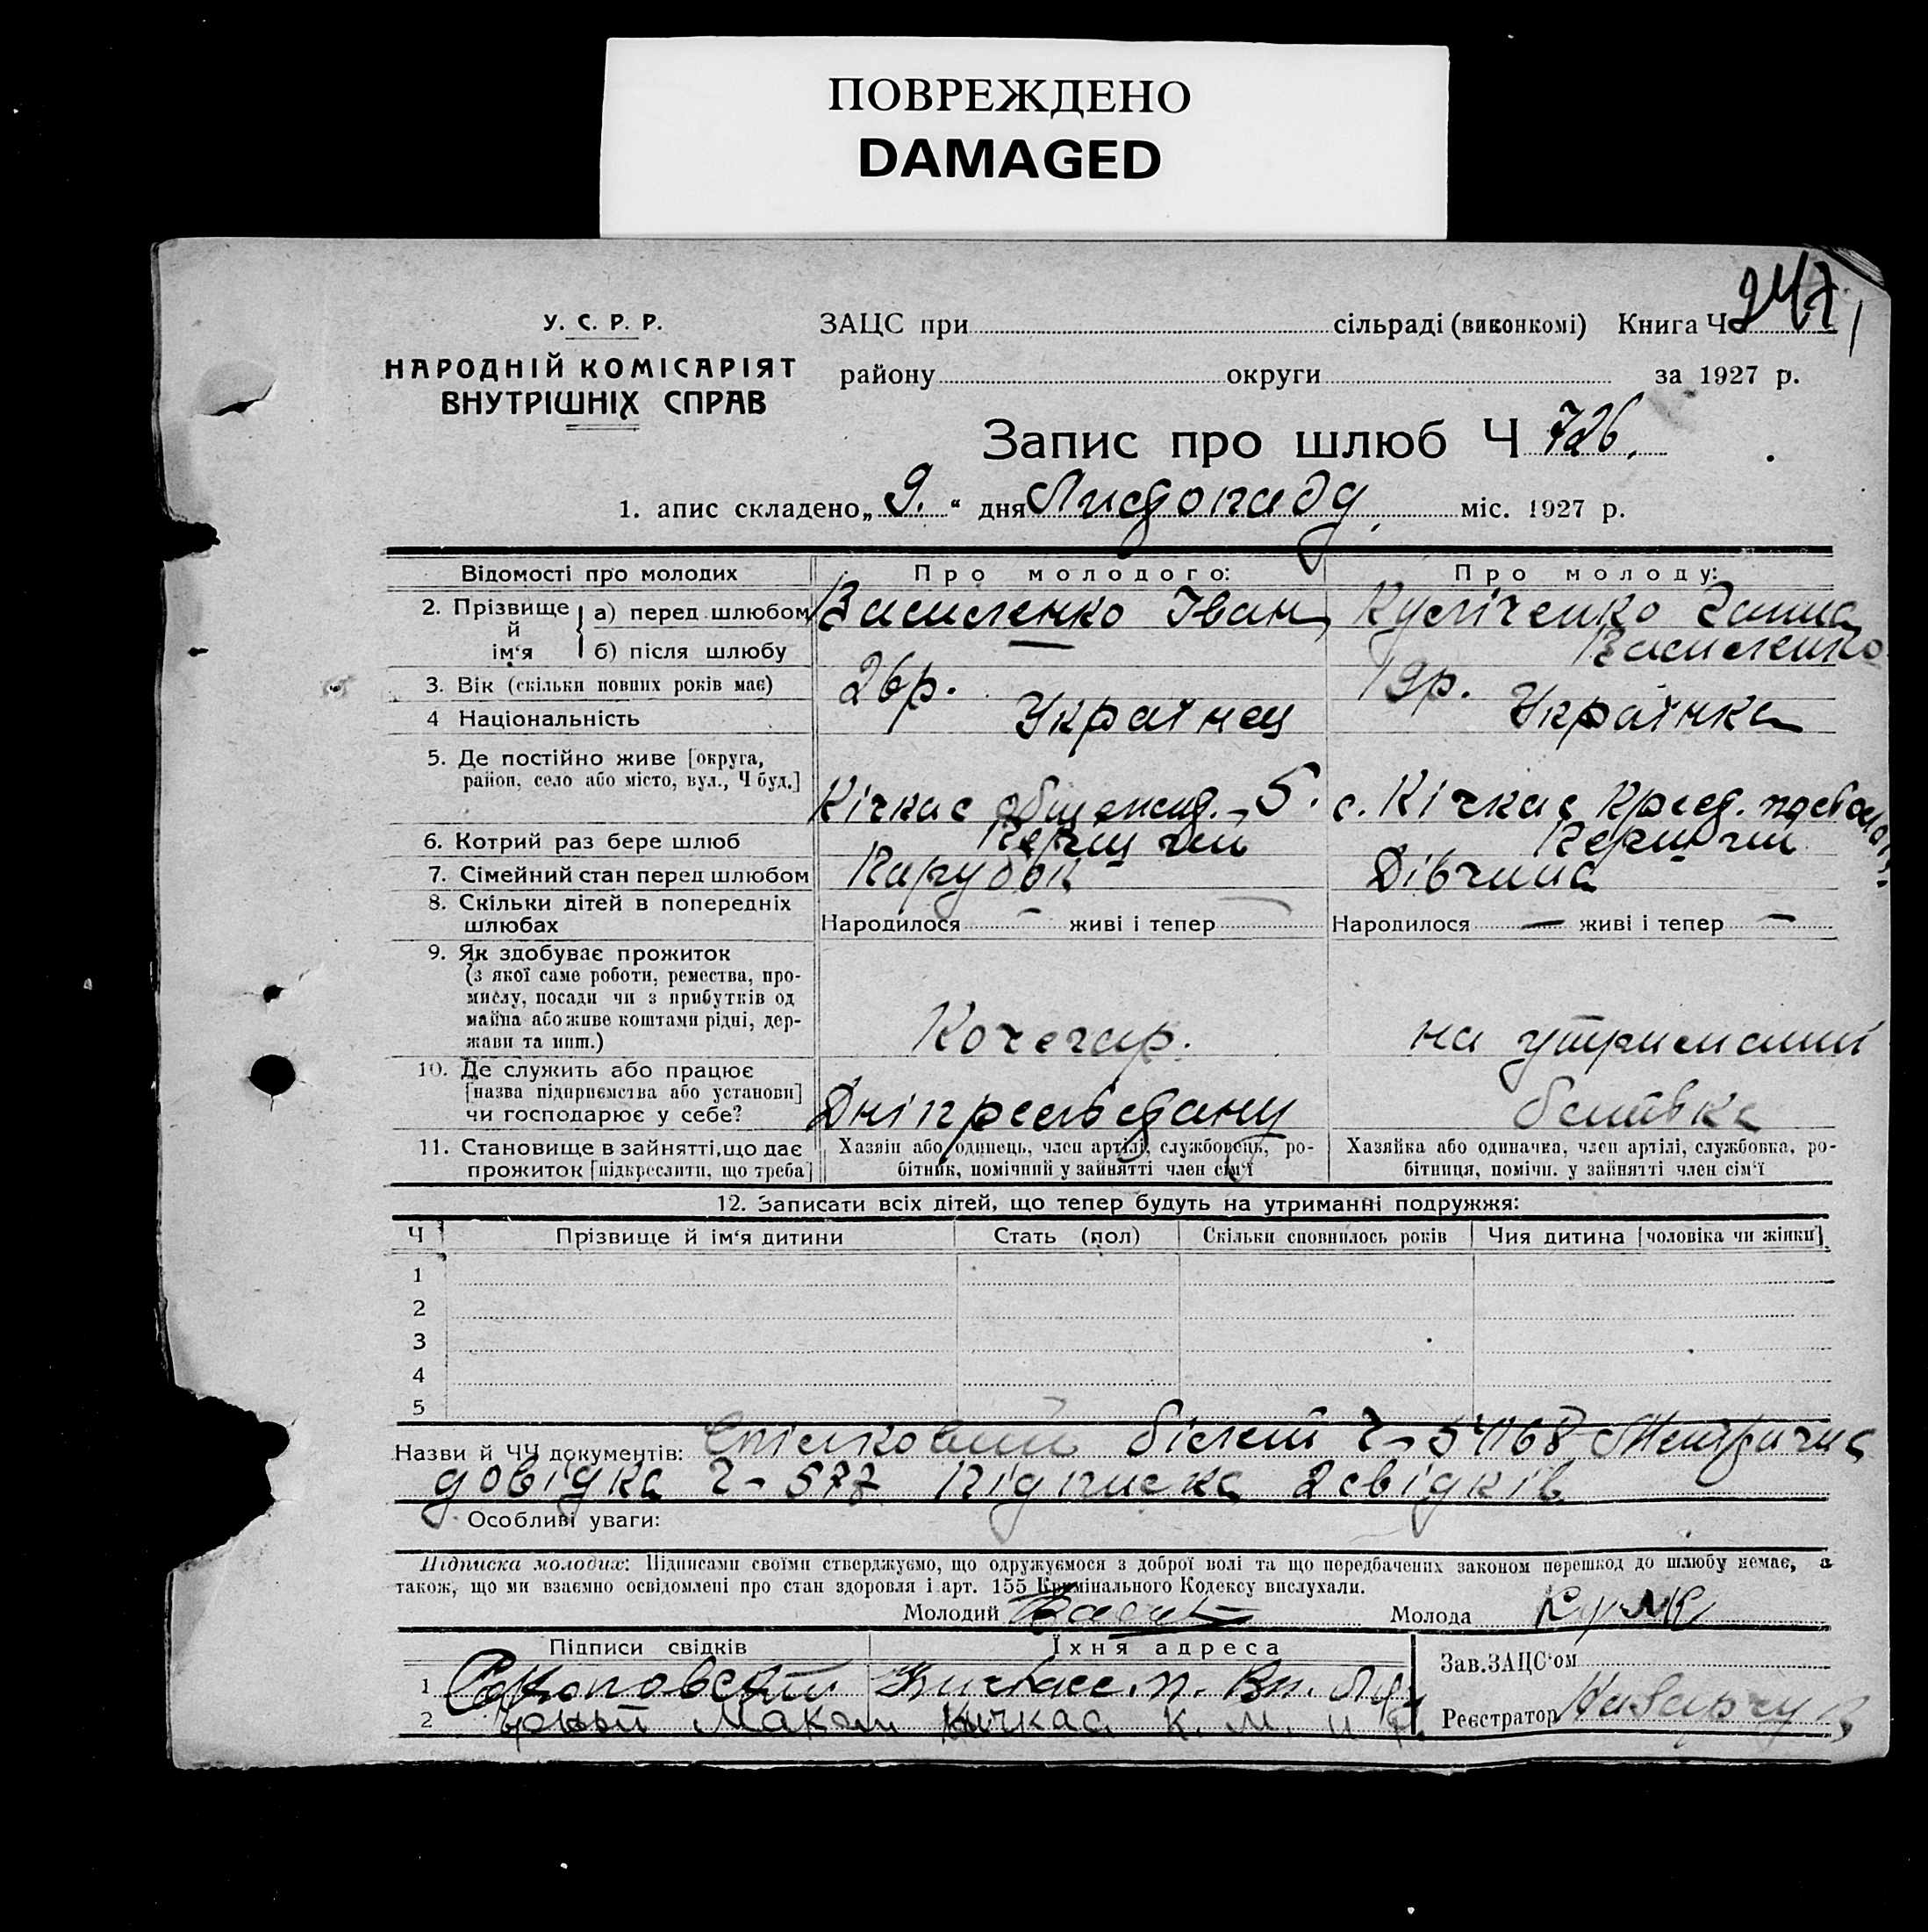 ПОВРЕЖДЕНО
DAMAGED
У. С. Р. Р.
НАРОДНІЙ КОМІСАРІЯТ
ВНУТРІШНІХ СПРАВ
ЗАЦС при сільраді (виконкомі) Книга Ч 247
району округи за 1927 р.
Запис про шлюб Ч 726.
1. апис складено „9.“ дня Листопаду міс. 1927 р.
Відомості про молодих
Про молодого:
Про молоду:
2. Прізвище й ім‘я
а) перед шлюбом Василенко Іван
б) після шлюбу — Василенко
3. Вік (скільки повних років має) 26р. 19р.
4 Національність Українец Українка
5. Де постійно живе [округа,
район, село або місто, вул., Ч буд.]
Кічкас общежид. – 5. с. Кічкас
6. Котрий раз бере шлюб Перший Перший
7. Сімейний стан перед шлюбом Парубок Дівчина
8. Скільки дітей в попередніх
шлюбах
Народилося — живі і тепер — Народилося — живі і тепер —
9. Як здобуває прожиток
(з якої саме роботи, ремества, про-
мислу, посади чи з прибутків од
майна або живе коштами рідні, дер-
жави та инш.)
Кочегар. на утриманий
10. Де служить або працює
[назва підприємства або установи]
чи господарює у себе?
батівка
11. Становище в зайнятті, що дає
прожиток [підкреслити, що треба]
Хазяїн або одинець, член артілі, службовець, ро-
бітник, помічний у зайнятті член сім‘ї
Хазяйка або одиначка, член артілі, службовка, ро-
бітниця, помічн. у зайнятті член сім‘ї
12. Записати всіх дітей, що тепер будуть на утриманні подружжя:
Ч Прізвище й ім‘я дитини Стать (пол) Скільки сповнилось років Чия дитина [чоловіка чи жінки]
1
2
3
4
5
Назви й ЧЧ документів: Спілковий білет Ч – 54168 Метрична
довідка Ч – 577 Підписка 2 свідків
Особливі уваги:
Підписка молодих: Підписами своїми стверджуємо, що одружуємося з доброї волі та що передбачених законом перешкод до шлюбу немає, а
також, що ми взаємно освідомлені про стан здоровля і арт. 155 Кримінального Кодексу вислухали.
Молодий Молода
Підписи свідків Їхня адреса
Зав.ЗАЦС‘ом
1
2 Кичкас
Реєстратор